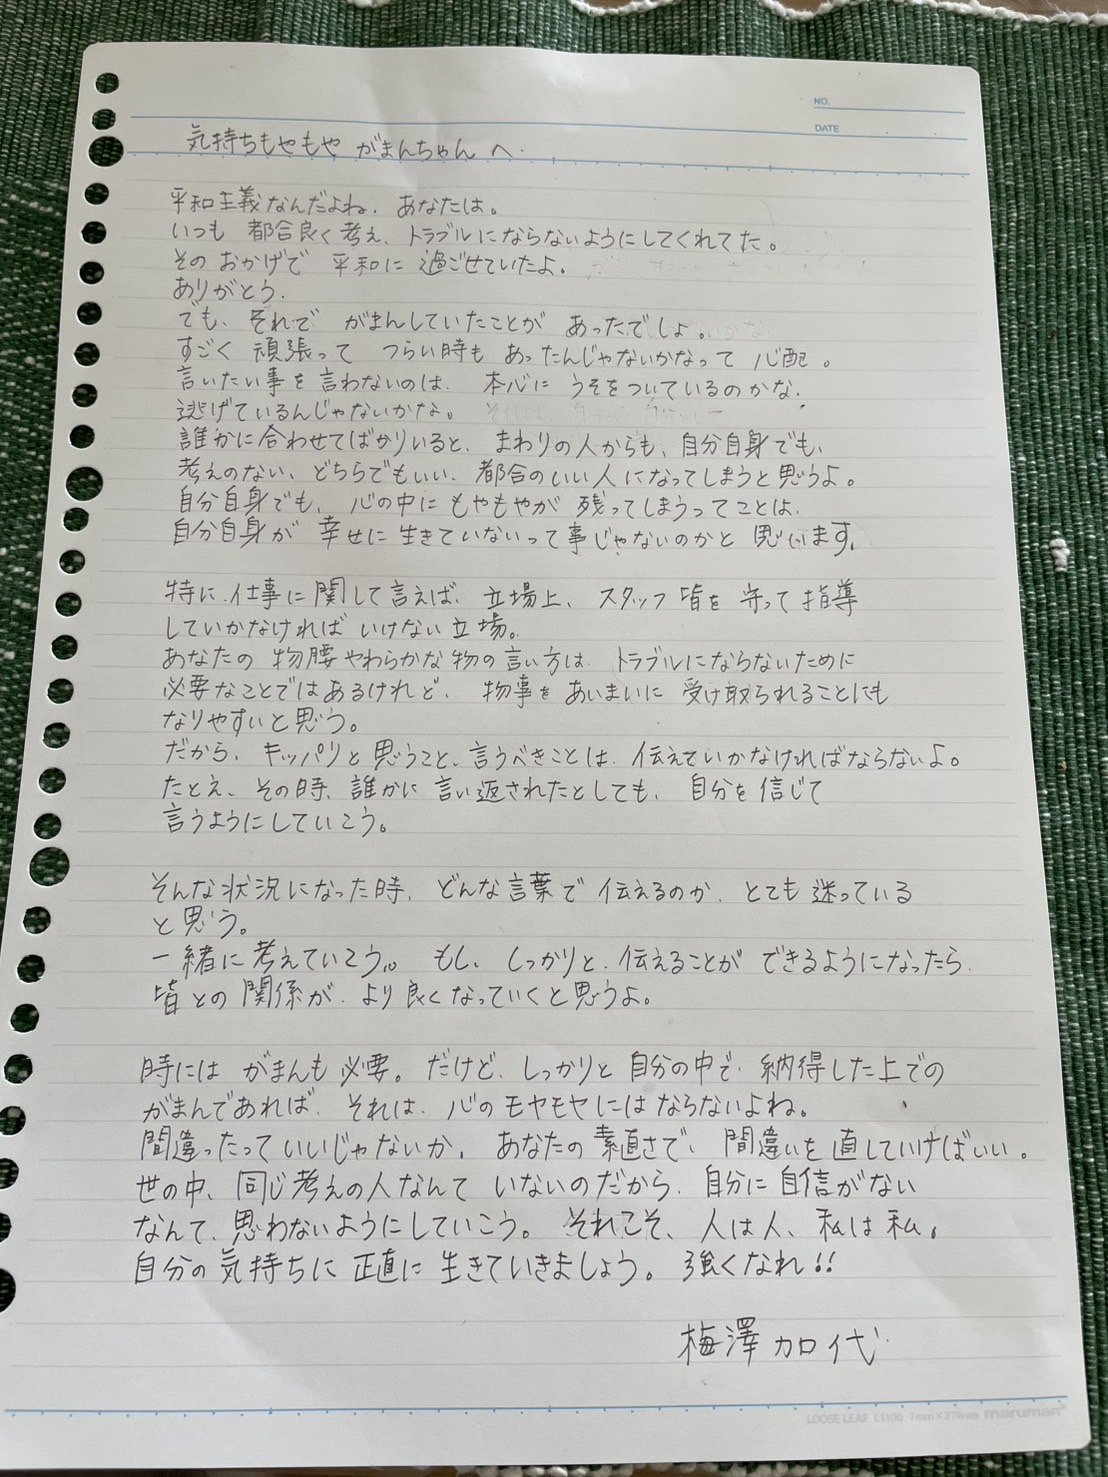 NO.
DATE
気持ちもやもや がまんちゃん へ.
平和主義なんだよね. あなたは。
いつも 都合良く考え、トラブルにならないようにしてくれてた。
そのおかげで 平和に過ごせていたよ.
ありがとう.
でも、それで がまんしていたことが あったでしょ.
すごく 頑張って つらい時も あったんじゃないかなって 心配。
言いたい事を言わないのは. 本心に うそをついているのかな.
逃げているんじゃないかな。
誰かに合わせてばかりいると、まわりの人からも、自分自身でも、
考えのない、どちらでもいい、都合のいい人になってしまうと思うよ。
自分自身でも、心の中に もやもやが 残ってしまうってことは、
自分自身が 幸せに生きていないって事じゃないのかと 思います。
特に、仕事に関して言えば、立場上、スタッフ皆を 守って 指導
していかなければ いけない立場。
あなたの 物腰やわらかな物の言い方は、トラブルにならないために
必要なことではあるけれど、物事を あいまいに 受け取られることにも
なりやすいと思う。
だから、キッパリと思うこと、言うべきことは、伝えていかなければならないよ。
たとえ、その時、誰かに言い返されたとしても、自分を信じて
言うようにしていこう。
そんな状況になった時、どんな言葉で 伝えるのか、とても迷っている
と思う。
一緒に考えていこう。。 もし、しっかりと、伝えることが できるようになったら、
皆との関係が、より良くなっていくと思うよ。
時には がまんも必要。だけど、しっかりと 自分の中で、納得した上での
がまんであれば、それは、心のモヤモヤにはならないよね。
間違ったっていいじゃないか. あなたの素直さで、間違いを直していけばいい。
世の中、同じ考えの人なんて いないのだから、自分に自信がない
なんて、思わないようにしていこう。それこそ、人は人、私は私。
自分の気持ちに 正直に 生きていきましょう。 強くなれ!!
梅澤 加代
LOOSE LEAF L1100 7mm×37lines maruman